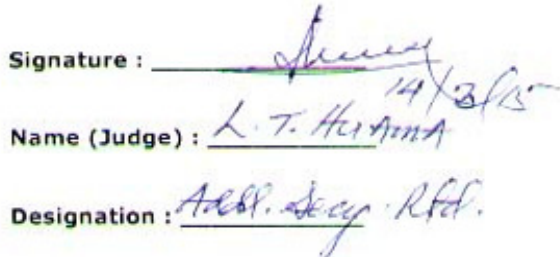 Signature :
14/3/15
Name (Judge) : L. T. HUAMA
Designation : Addl. Secy. Rtd.